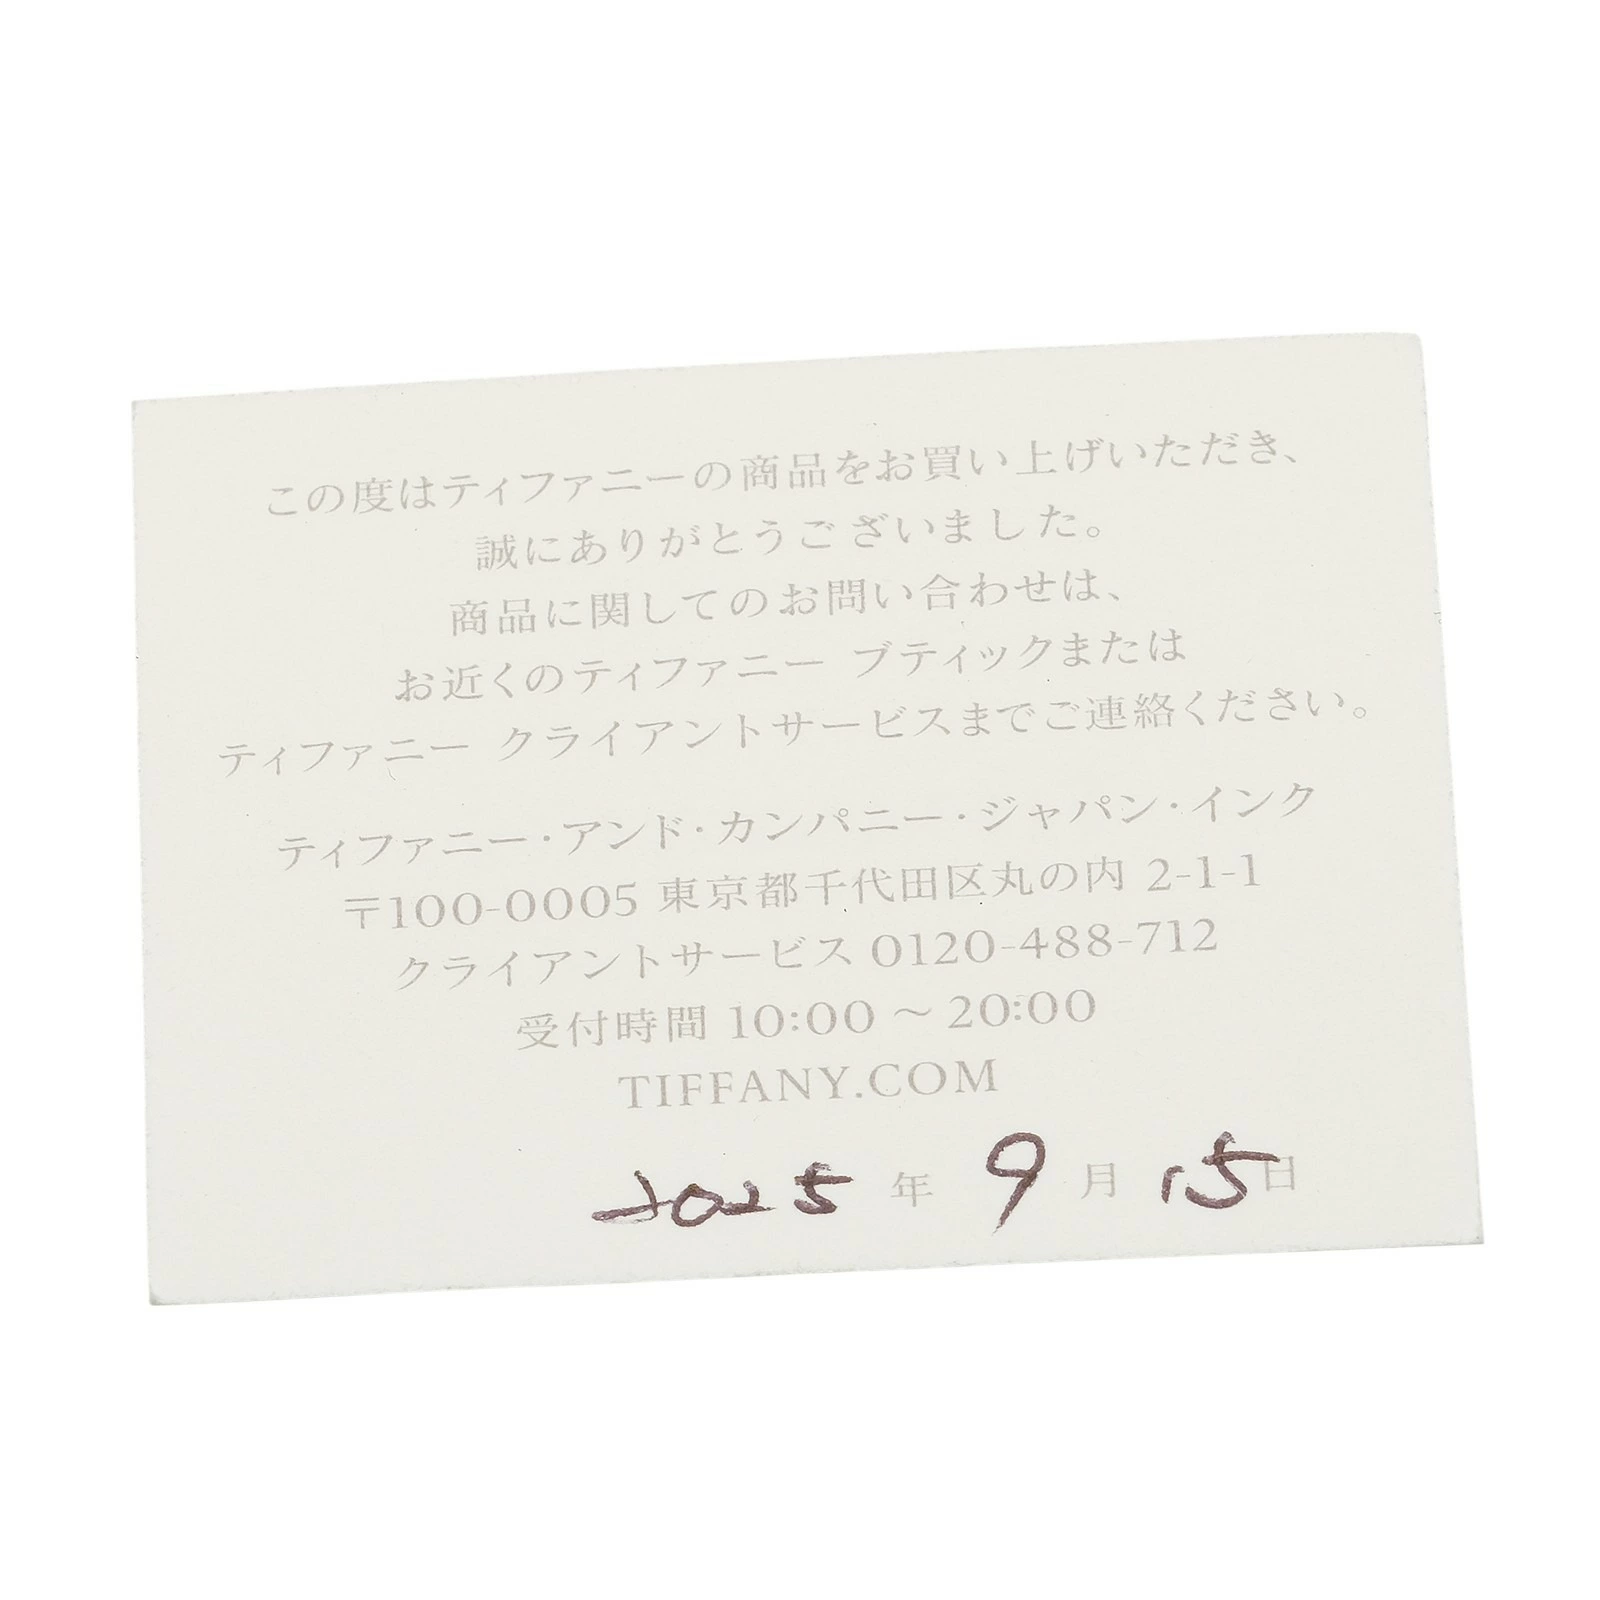 この度はティファニーの商品をお買い上げいただき、
誠にありがとうございました。
商品に関してのお問い合わせは、
お近くのティファニー ブティックまたは
ティファニー クライアントサービスまでご連絡ください。
ティファニー・アンド・カンパニー・ジャパン・インク
〒100-0005 東京都千代田区丸の内 2-1-1
クライアントサービス 0120-488-712
受付時間 10:00 ～ 20:00
TIFFANY.COM
2025 年 9 月 15 日